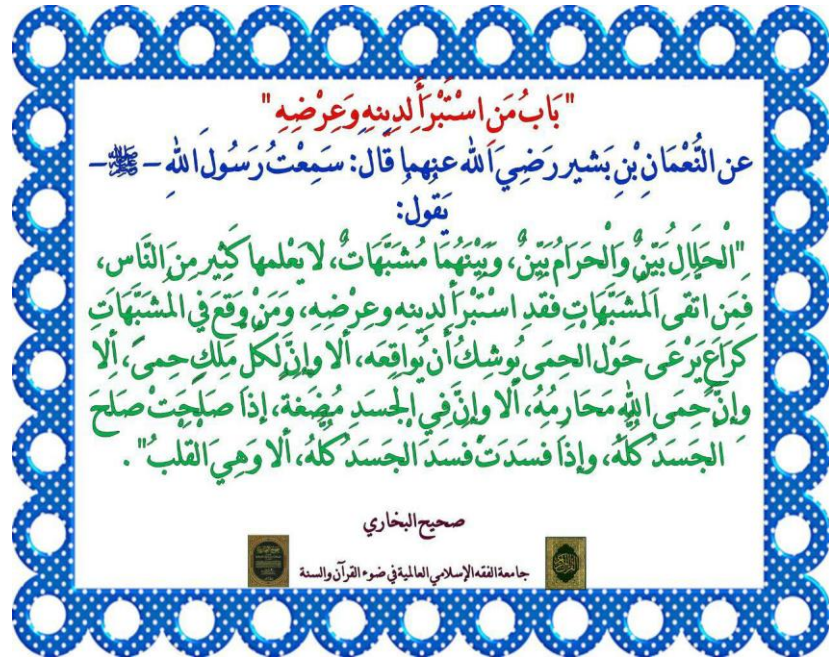 "بَابُ مَنِ اسْتَبْرَأَ لِدِينِهِ وَعِرْضِهِ"
عن النُّعْمَانِ بْنِ بَشير رَضِيَ الله عنهما قَال: سَمِعْتُ رَسُولَ اللهِ - ﷺ -
يَقول:
"الْحَلَالُ بَيِّنٌ وَالْحَرَامُ بَيِّنٌ، وَبَيْنَهُمَا مُشَبَّهَاتٌ، لا يَعْلمها كَثِير مِنَ النَّاس،
فَمَن اتَّقى المُشَبَّهَاتِ فقد اسْتَبْرَأ لدِينه وعِرْضِه، وَمَنْ وَقَعَ في المشَبَّهَاتِ
كرَاعٍ يَرْعَى حَوْل الحِمَى يُوشِكُ أن يُواقِعَه، ألَا وإنَّ لكُلِّ مَلِكٍ حِمىً، ألا
وإنَّ حِمَى اللهِ مَحَارِمُهُ، ألَا وإنَّ في الجَسَدِ مُضغَةً، إذَا صَلَحَتْ صَلحَ
الجَسَدُ كُلُّهُ، وإذَا فسَدَتْ فسَدَ الجَسَدُ كُلُّهُ، ألا وَهِيَ القَلْبُ".
صحيح البخاري
جامعة الفقه الإسلامي العالمية في ضوء القرآن والسنة